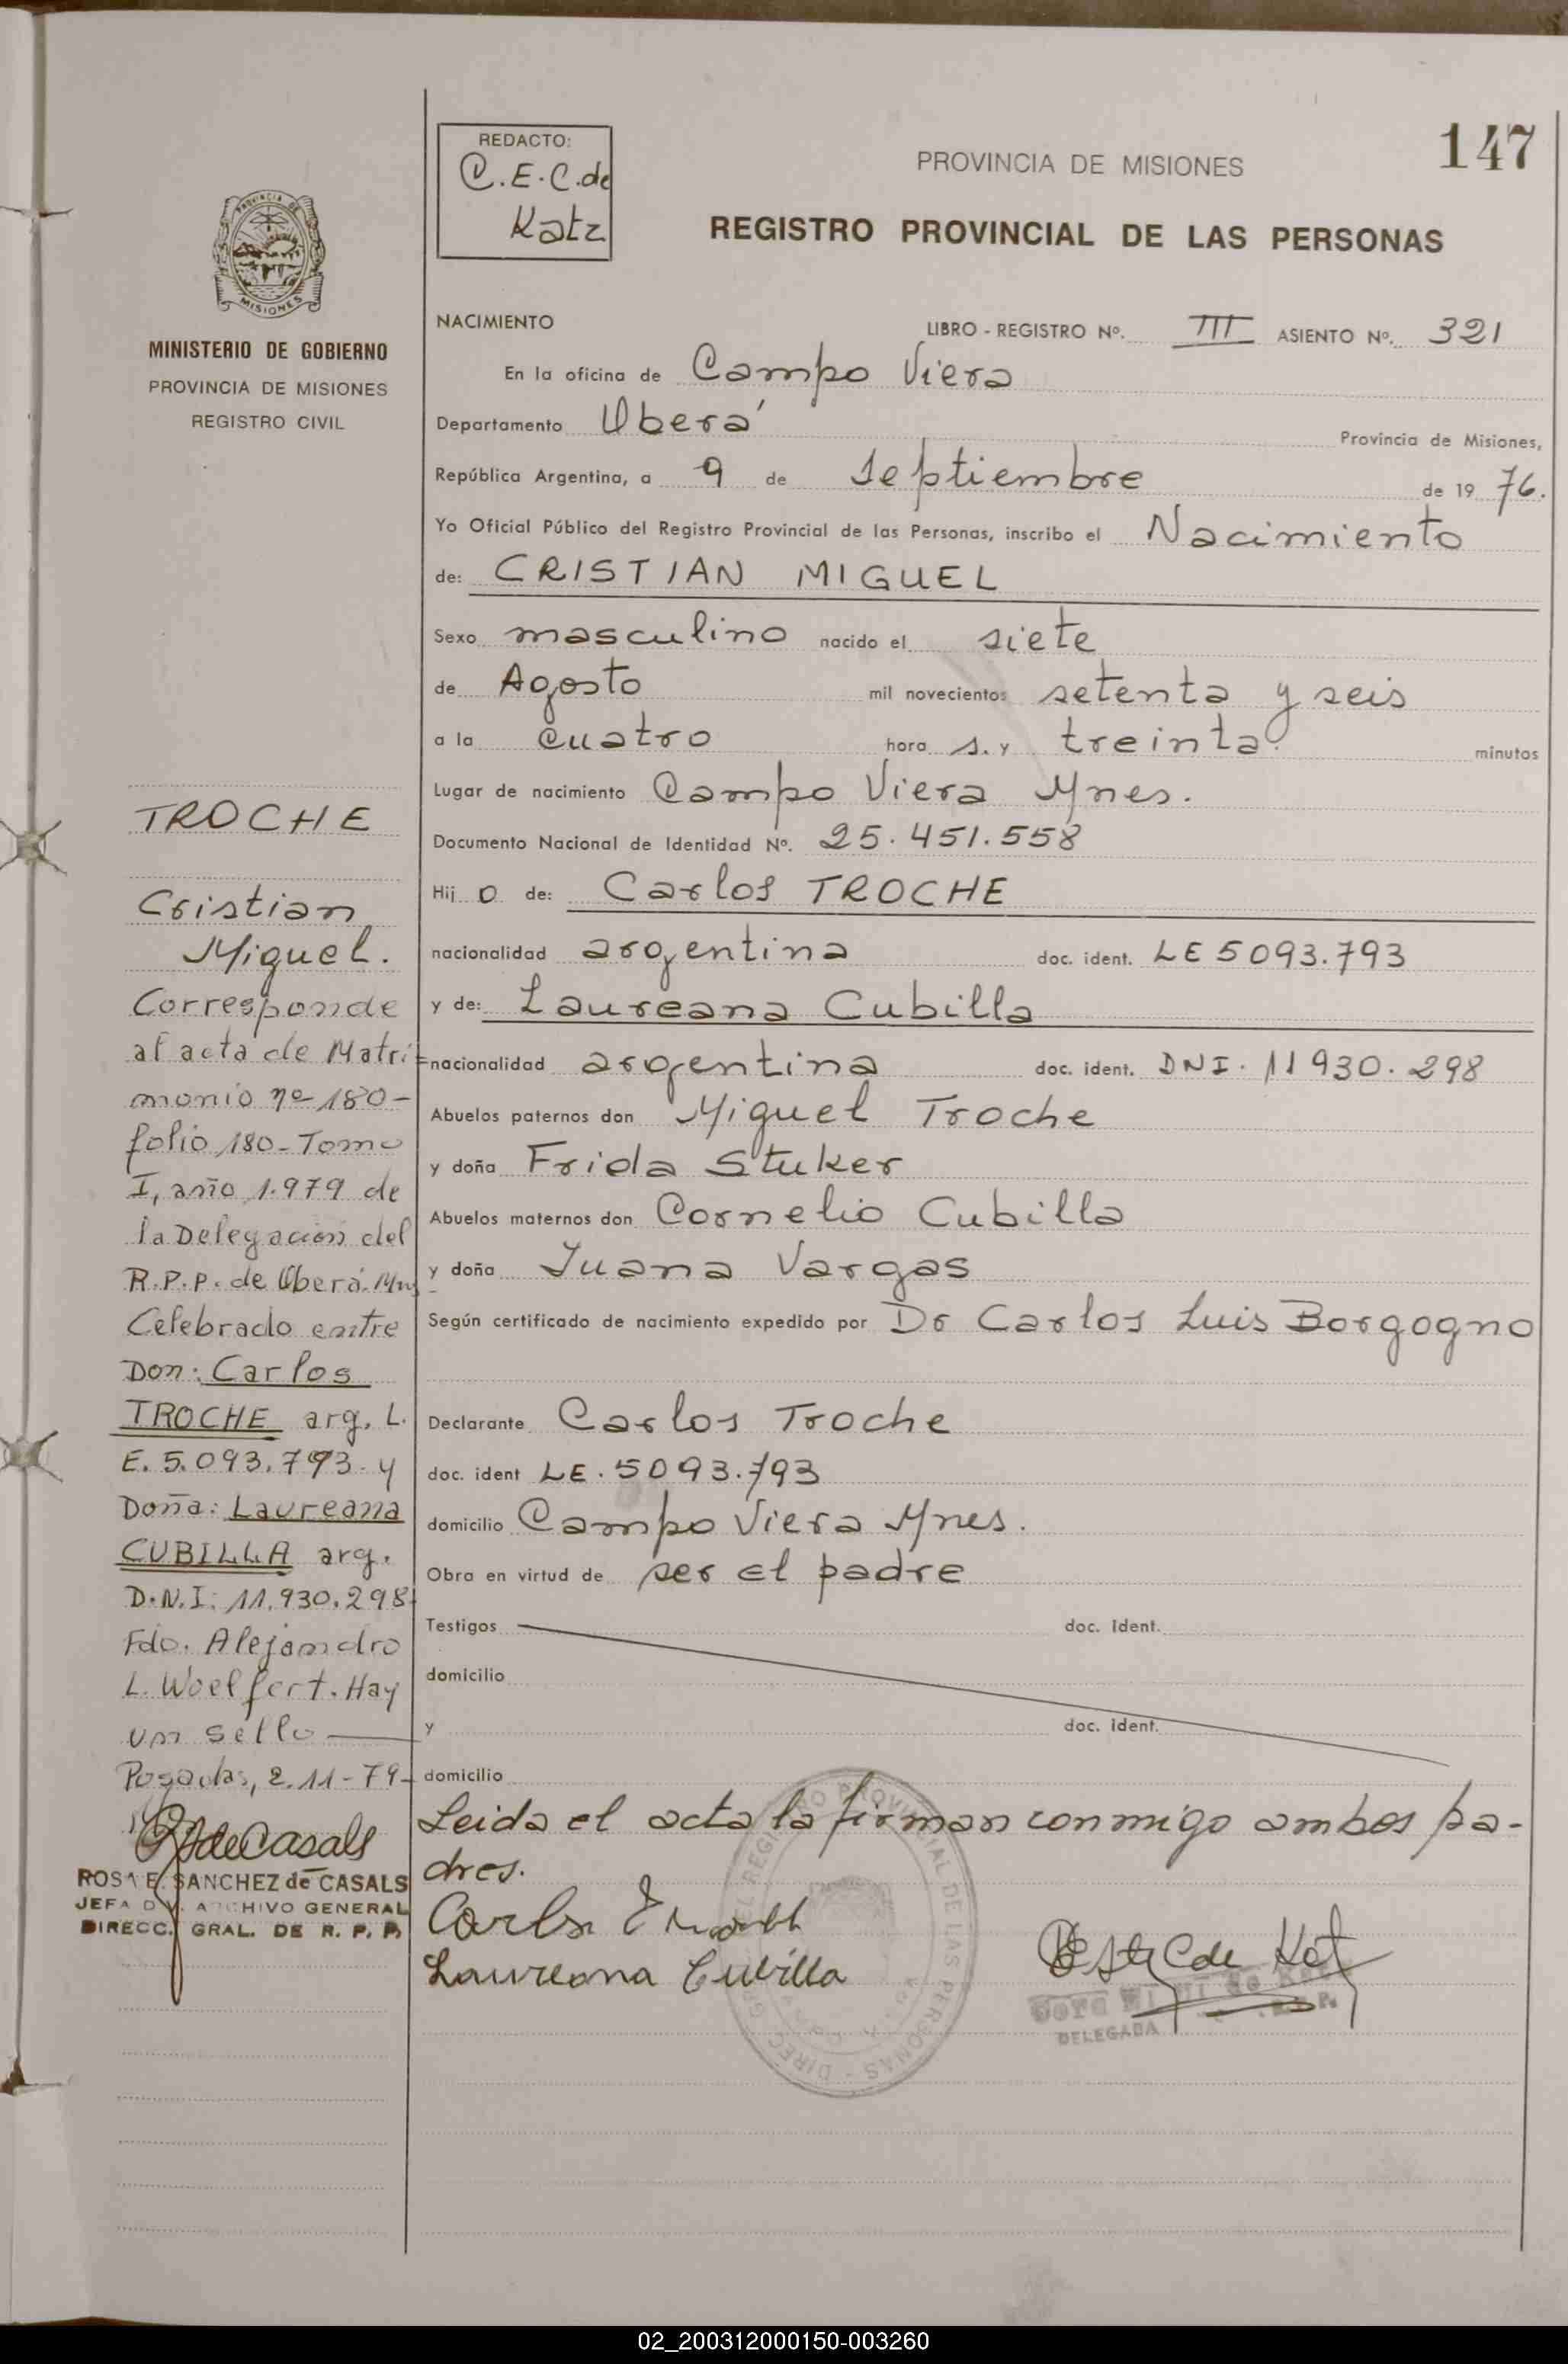 147
REDACTO:
C.E.C. de
Katz
PROVINCIA DE MISIONES
REGISTRO PROVINCIAL DE LAS PERSONAS
PROVINCIA DE
MISIONES
MINISTERIO DE GOBIERNO
PROVINCIA DE MISIONES
REGISTRO CIVIL
TROCHE
Cristian
Miguel.
Corresponde
al acta de Matri=
monio nº 180-
folio 180-Tomo
I, año 1.979 de
la Delegación del
R.P.P. de Oberá. Mns
Celebrado entre
Don: Carlos
TROCHE arg. L.
E. 5.093.793 y
Doña: Laureana
CUBILLA arg.
D.N.I: 11.930.298
Fdo. Alejandro
L. Woelfert. Hay
un sello
Posadas, 2.11-79-
ROSA E. SANCHEZ de CASALS
JEFA DV. ARCHIVO GENERAL
DIRECC. GRAL. DE R. P. P.
NACIMIENTO LIBRO - REGISTRO Nº. III ASIENTO Nº. 321
En la oficina de Campo Viera
Departamento Oberá Provincia de Misiones,
República Argentina, a 9 de Septiembre de 19 76.
Yo Oficial Público del Registro Provincial de las Personas, inscribo el Nacimiento
de: CRISTIAN MIGUEL
Sexo masculino nacido el siete
de Agosto mil novecientos setenta y seis
a la cuatro hora s. y treinta. minutos
Lugar de nacimiento Campo Viera Mnes.
Documento Nacional de Identidad Nº. 25.451.558
Hij o de: Carlos TROCHE
nacionalidad argentina doc. ident. LE 5093.793
y de: Laureana Cubilla
nacionalidad argentina doc. ident. DNI. 11930.298
Abuelos paternos don Miguel Troche
y doña Frida Stuker
Abuelos maternos don Cornelio Cubilla
y doña Juana Vargas
Según certificado de nacimiento expedido por Dr Carlos Luis Borgogno
Declarante Carlos Troche
doc. ident LE. 5093.793
domicilio Campo Viera Mnes.
Obra en virtud de ser el padre
Testigos doc. ident.
domicilio
y doc. ident.
domicilio
Leida el acta la firman conmigo ambos pa-
dres.
Laureana Cubilla
DELEGADA
02_200312000150-003260